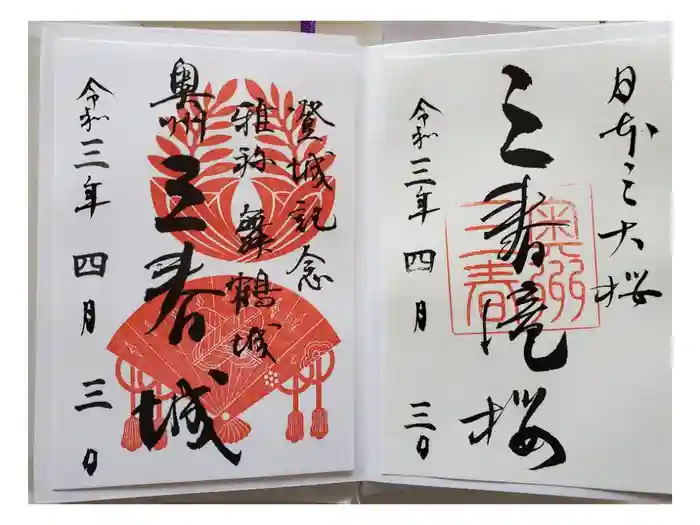 日本三大桜
三春滝桜
奥州
三春
令和三年四月三日
登城記念
雅称 舞鶴城
奥州
三春城
令和三年四月三日